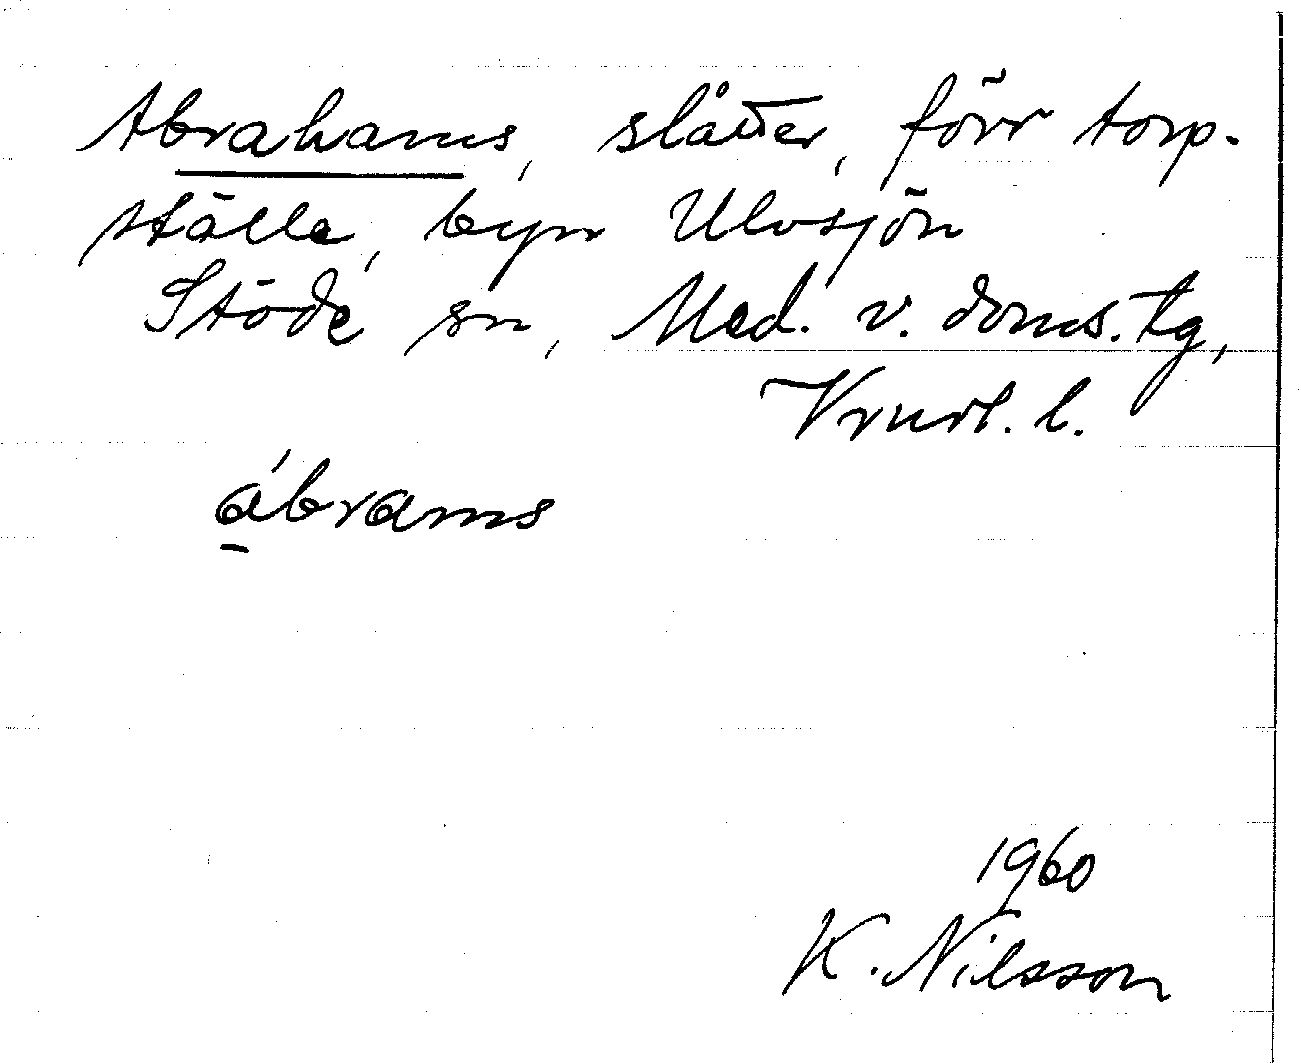 Abrahams, slåtter, förr torp-
ställe, byn Ulvsjön
Stöde sn, Med. v. doms. tg,
Vrnrl. l.
ábrams
1960
K. Nilsson